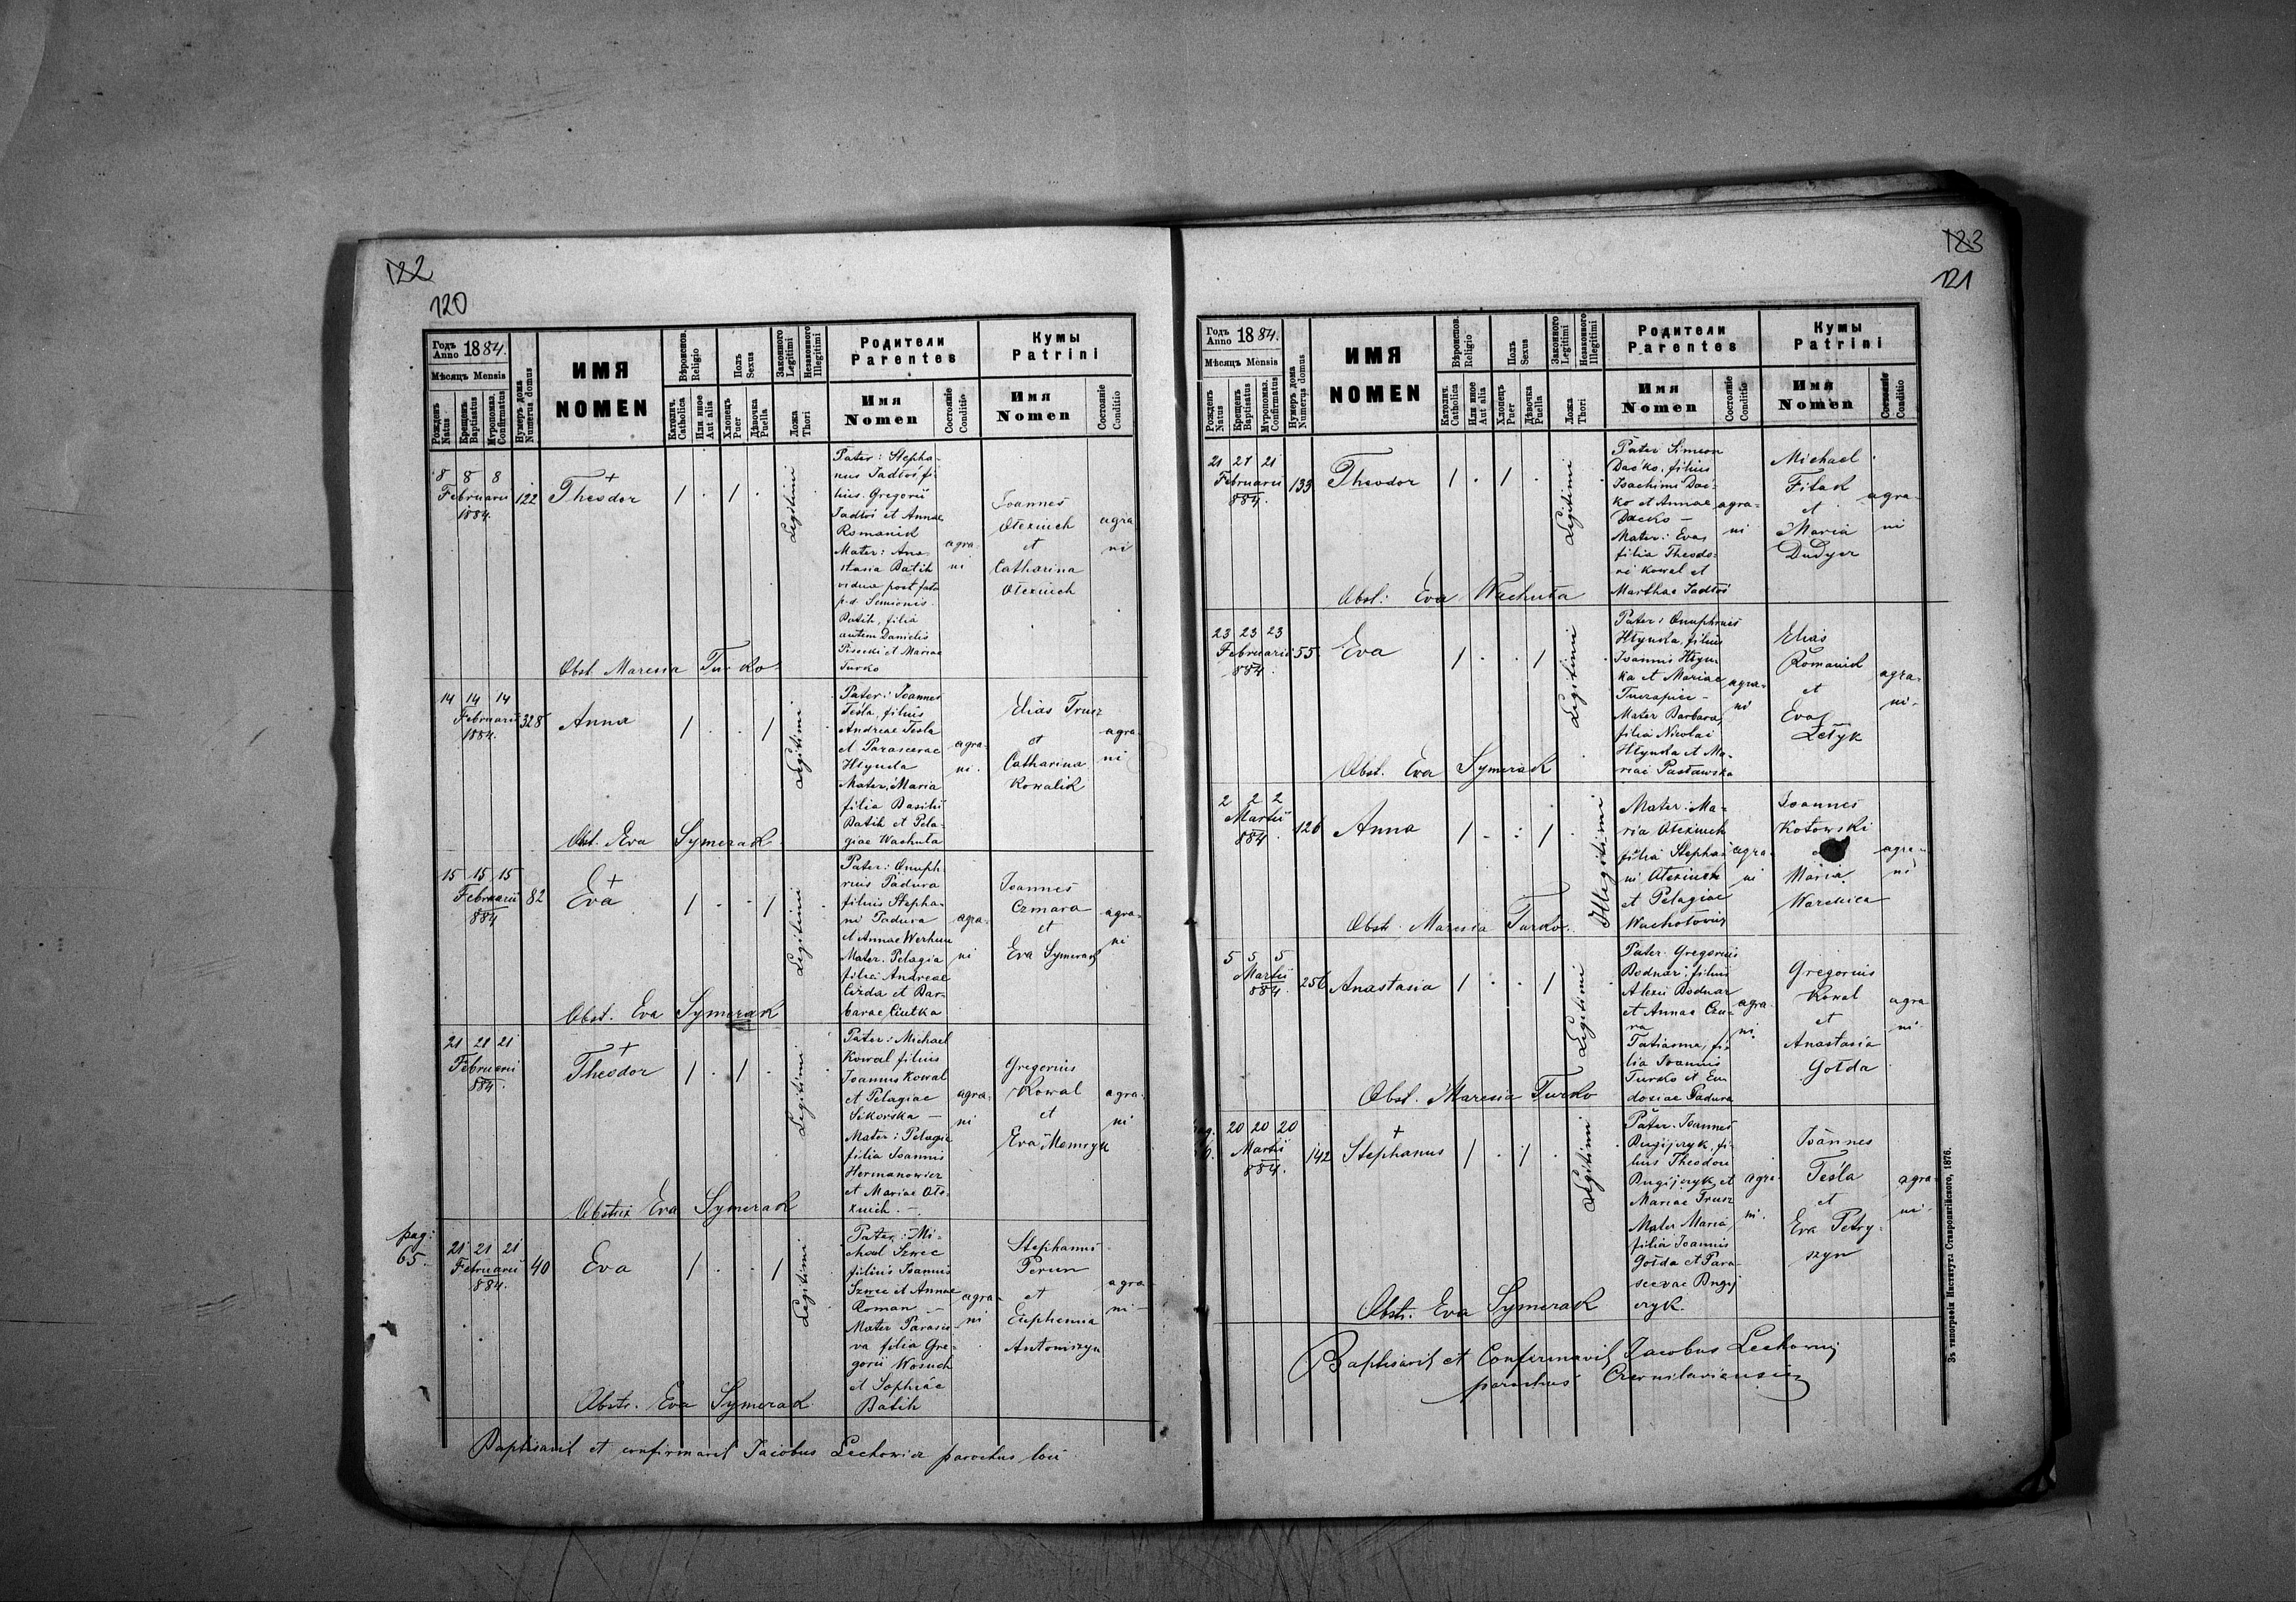 122
120
Годъ Anno 1884.
Мѣсяцъ Mensis
Рожденъ Natus
Крещенъ Baptisatus
Муропомаз. Confirmatus
Нумеръ дома Numerus domus
ИМЯ
NOMEN
Вѣроиспов. Religio
Католич. Catholica
Или иное Aut alia
Полъ Sexus
Хлопецъ Puer
Дѣвочка Puella
Законного Legitimi
Незаконного Illegitimi
Ложа Thori
Родители
Parentes
Имя
Nomen
Состояніе
Conditio
Кумы
Patrini
Имя
Nomen
Состояніе
Conditio
8 8 8
Februarii
1884.
122
Theodor
Legitimi
Pater: Stepha-
nus Jadłoś fi-
lius Gregorii
Jadłoś et Annae
Romanik
Mater: Ana-
stasia Batih
vidua post fata
p.d. Simionis
Batih, filia
autem Danielis
Pisecki et Mariae
Turko
agra-
ni
Joannes
Olexiuch
et
Catharina
Olexiuch
agra
ni
Obst. Maresia Turko
14 14 14
Februarii
1884.
328
Anna
Legitimi
Pater: Joannes
Tesla, filius
Andreae Tesla
et Parascevae
Hłynda
Mater, Maria
filia Basilii
Batih et Pela-
giae Wachuła
agra-
ni.
Elias Trusz
et
Catharina
Kowalik
agra-
ni
Obst. Eva Symerak
15 15 15
Februarii
884
82
Eva
Legitimi
Pater: Onuph
rius Padura
filius Stepha-
ni Padura
et Annae Werhun
Mater. Pelagia
filia Andreae
Cizda et Bar-
barae Ciutka
agra-
ni
Joannes
Czmara
et
Eva Symerak
agra-
ni
Obst. Eva Symerak
21 21 21
Februarii
884.
Theodor
Legitimi
Pater: Michael
Kowal filius
Joannis Kowal
et Pelagiae
Sikorska —
Mater: Pelagia
filia Joannis
Hermanowicz
et Mariae Ole-
xiuch. —
agra-
ni
Gregorius
Kowal
et
Eva Memryk
agra-
ni
Obstrix Eva Symerak
pag:
65.
21 21 21
Februarii
884.
40
Eva
Legitimi
Pater: Mi-
chael Szwec
filius Joannis
Szwec et Annae
Roman —
Mater Parasce-
va filia Gre-
gorii Wosuch
et Sophiae
Batih
agra-
ni
Stephanus
Perun
et
Euphemia
Antoniszyn
agra-
ni-
Obstr. Eva Symerak
Baptisavit et confirmavit Jacobus Lechowicz parochus loci
123
121
Годъ Anno 1884.
Мѣсяцъ Mensis
Рожденъ Natus
Крещенъ Baptisatus
Муропомаз. Confirmatus
Нумеръ дома Numerus domus
ИМЯ
NOMEN
Вѣроиспов. Religio
Католич. Catholica
Или иное Aut alia
Полъ Sexus
Хлопецъ Puer
Дѣвочка Puella
Законного Legitimi
Незаконного Illegitimi
Ложа Thori
Родители
Parentes
Имя
Nomen
Состояніе
Conditio
Кумы
Patrini
Имя
Nomen
Состояніе
Conditio
21 21 21
Februarii
884.
133
Theodor
Legitimi
Pater Simeon
Dačko, filius
Joachimi Dač-
ko et Annae
Dacko —
Mater: Eva,
filia Theodo-
ri Kowal et
Marthae Jadłoś
agra-
ni
Michael
Fitak
et
Maria
Dudyer
agra-
ni
Obst: Eva Wachuła
23 23 23
Februarii
884.
55
Eva
Legitimi
Pater: Onuphrius
Hłynka, filius
Joannis Hłyn-
ka et Mariae
—
Mater Barbara,
filia Nicolai
Hłynka et Ma-
riae Pasławska
agra-
ni
Elias
Romanik
et
Eva
Łetyk
agra-
ni-
Obst. Eva Symerak
2 2 2
Martii
884.
126
Anna
Illegitimi
Mater: Ma-
ria Olexiuch
filia Stepha-
ni Olexiuch
et Pelagiae
agra-
ni
Joannes
Kotowski
Maria
agra-
ni
Obstr. Maresia Turko.
5 5 5
Martii
884.
256
Anastasia
Legitimi
Pater. Gregorius
Bodnar, filius
Alexii Bodnar
et Annae Czu-
ra
Tatianna, fi-
lia Joannis
Turko et Eu-
doxiae Padura
agra-
ni
Gregorius
Kowal
et
Anastasia
Gołda
agra
ni-
Obst. Maresia Turko
20 20 20
Martii
884.
142
Stephanus
Legitimi
Pater. Joannes
Bugijczyk, fi-
lius Theodori
Bugijczyk et
Mariae Trusz
Mater Maria,
filia Joannis
Gołda et Para-
scevae Bugij
czyk.
agra-
ni.
Joannes
Tesla
et
Eva Petry-
szyn
agra-
ni-
Obstr. Eva Symerak
Baptisavit et Confirmavit Jacobus Lechowicz
parochus
Зъ типографіи Института Ставропигійского, 1876.